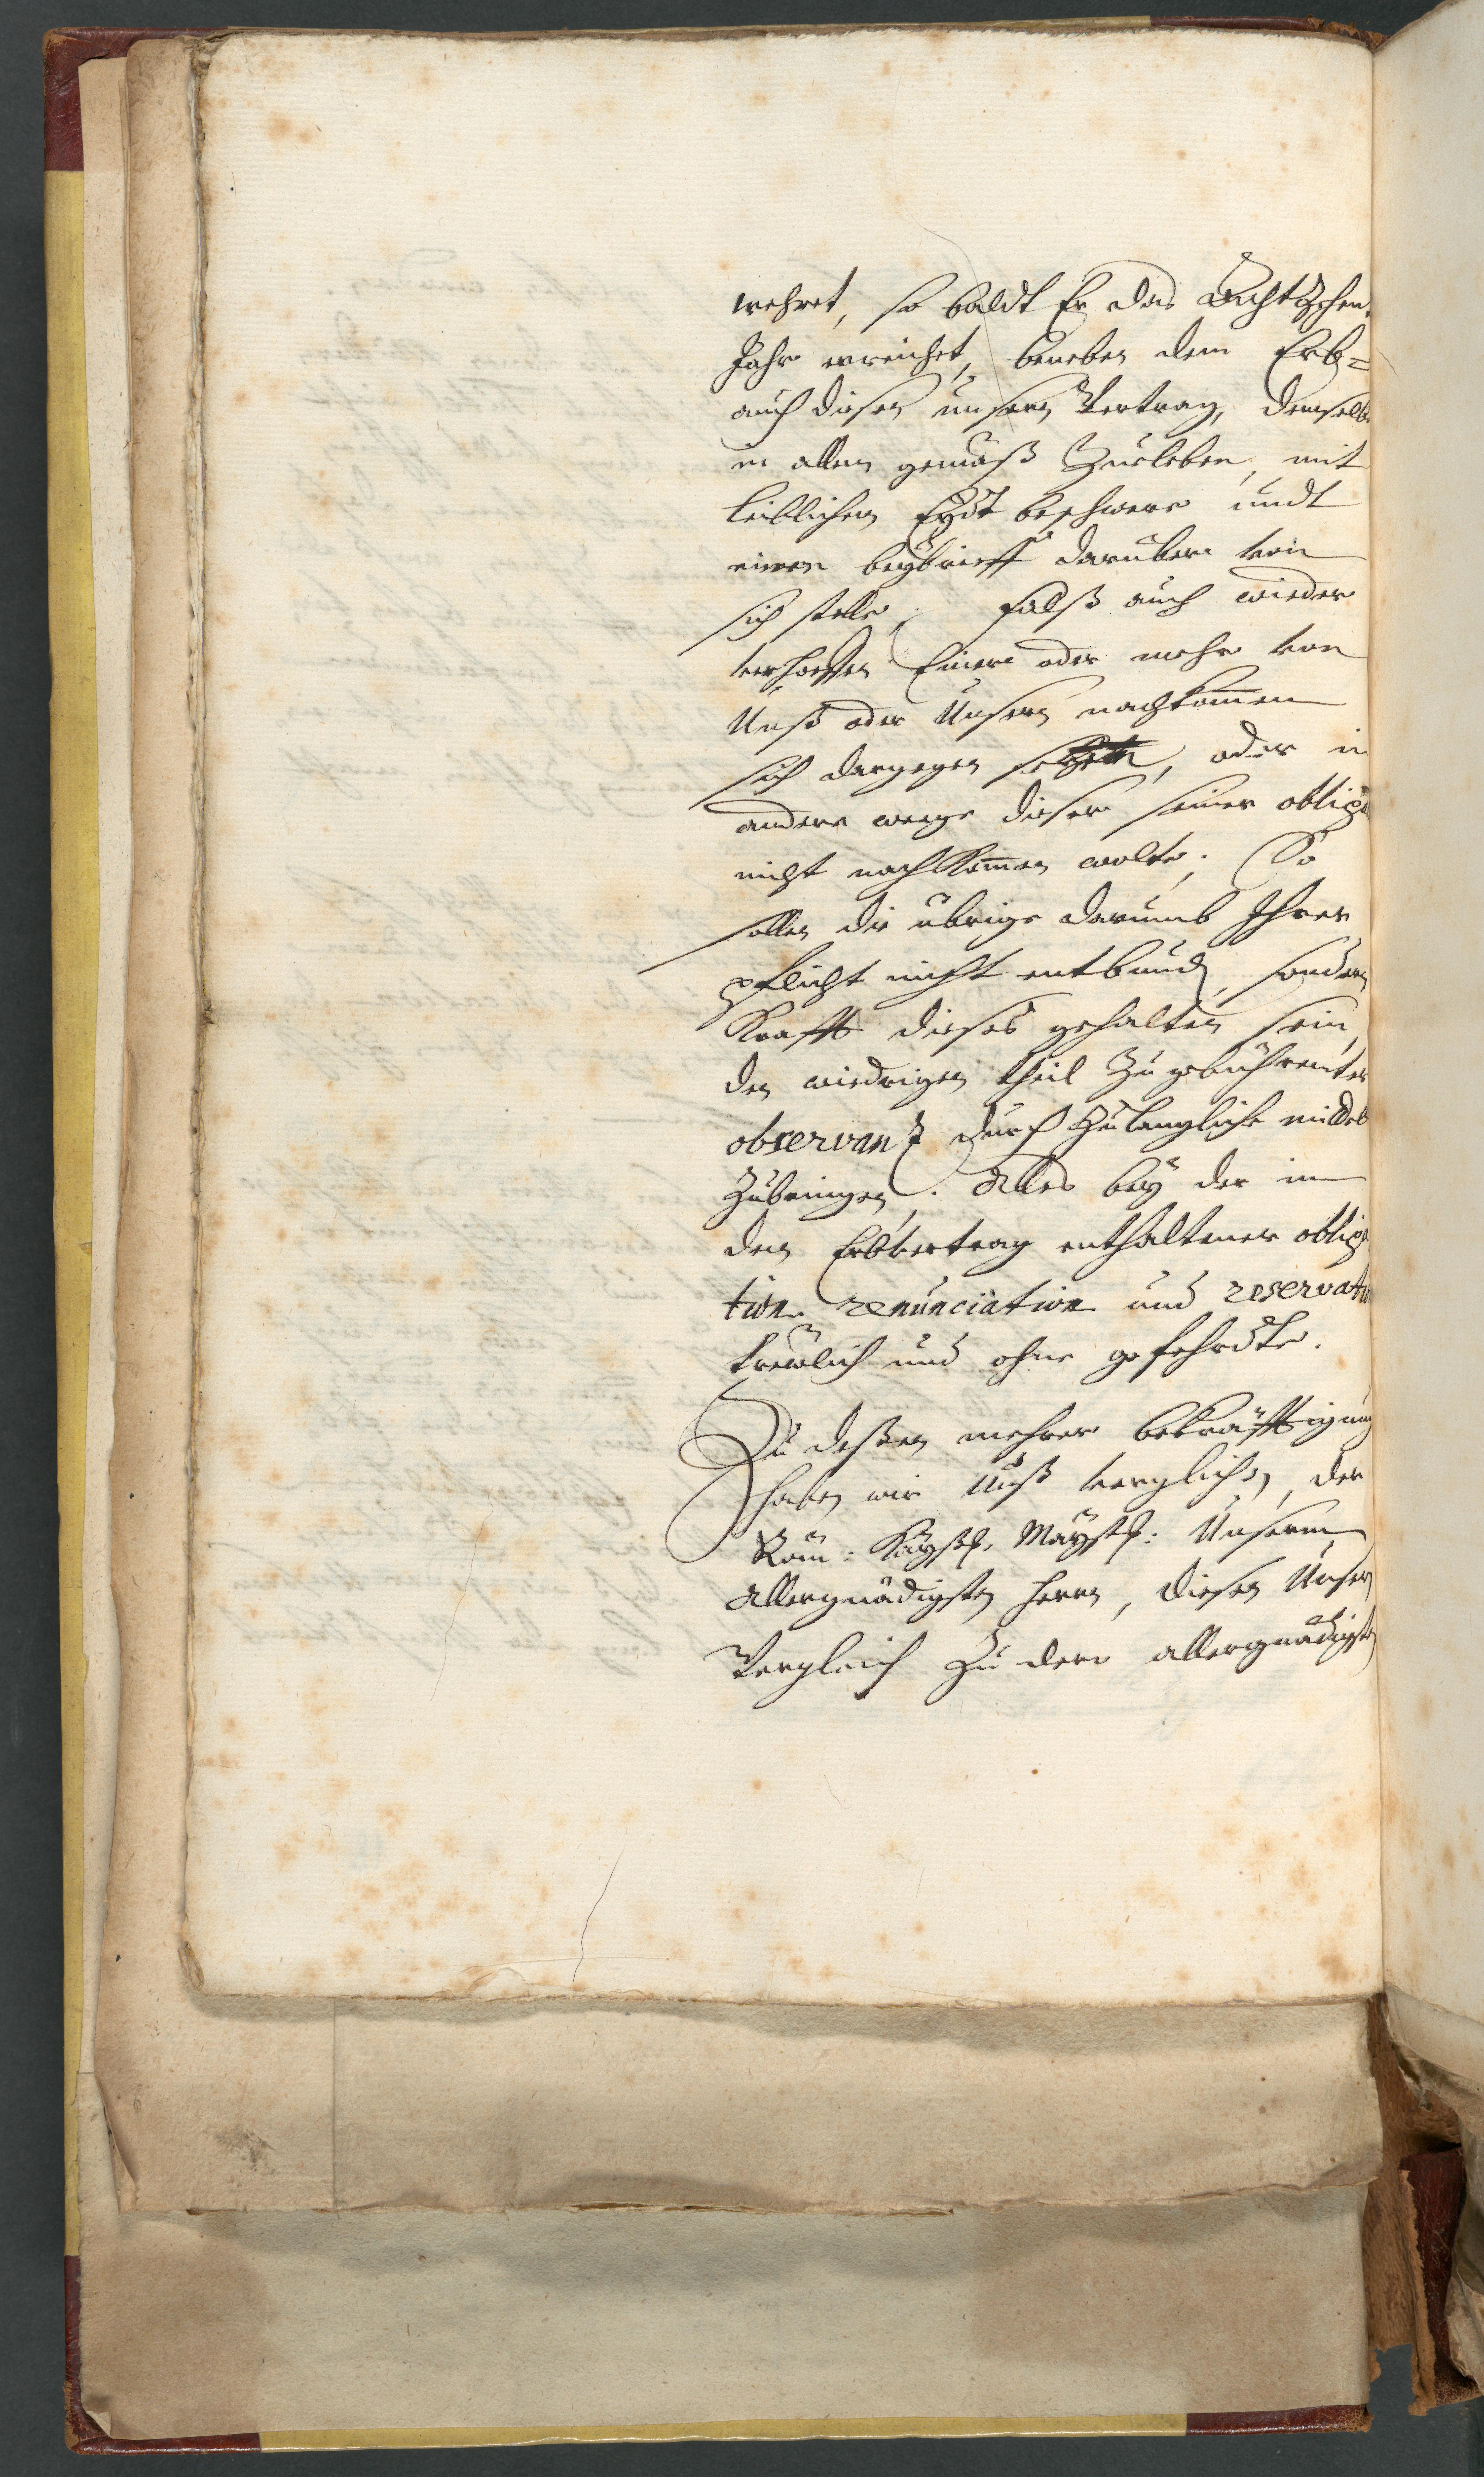 wehret, so baldt Er das Achtzehen
Jahr erreichet, beneben dem Erb=
auch diesen unsern Vertrag, demselb
in allem gemäß Zuleben, mit
leiblichen Eydt beschwere undt
einen beybrieff darüber von
sich stelle. Falß auch wieder
verhoffen Einer oder mehr von
Unß oder Unsern nachkom̄en
sich dargegen setzen, oder in
andere wege dieser seiner obliga
nicht nachkom̄en wolte; So
sollen die übrige darumb Ihrer
pflicht nicht entbund, sondern
Krafft dieses gehalten sein,
den wiedrigen theil Zu gebührenter
observanz durch Zulangliche mittel
Zubringen. Alles bey der in
den Erbvertrag enthaltener obliga
tion renunciation und reservatio
trewlich und ohne gefehrdte.
Zu deßen mehrer bekräfftigung
haben wir Unß verglichen, der
Röm: Kayßl. Mayßt: Unserm
Allergnädigsten Herrn, diesen Unsern
Vergleich Zu dero allergnädigsten